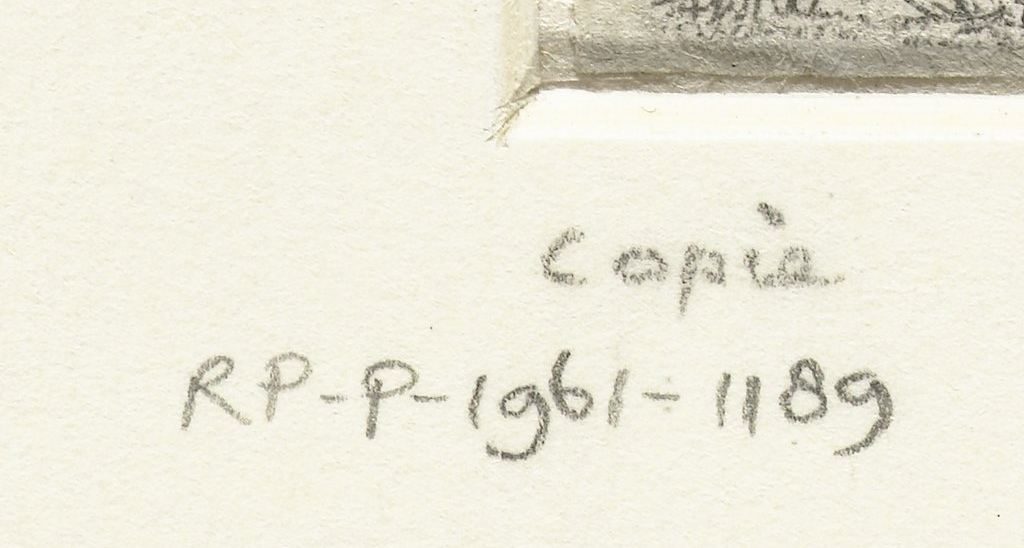 Copie
RP-P-1961-1189